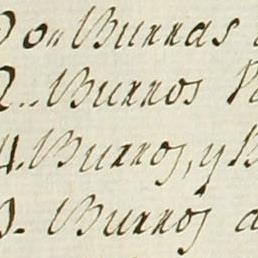 on Burras
2.. Burros
4. Burros, y B
9. Burros a